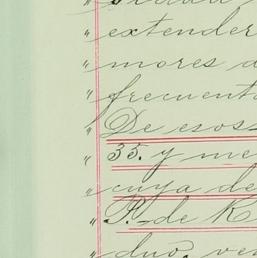 " extender
" mores a
" frecuent
" De esos
" 35. y me
" cuya de
" P. de R
" duo, ve